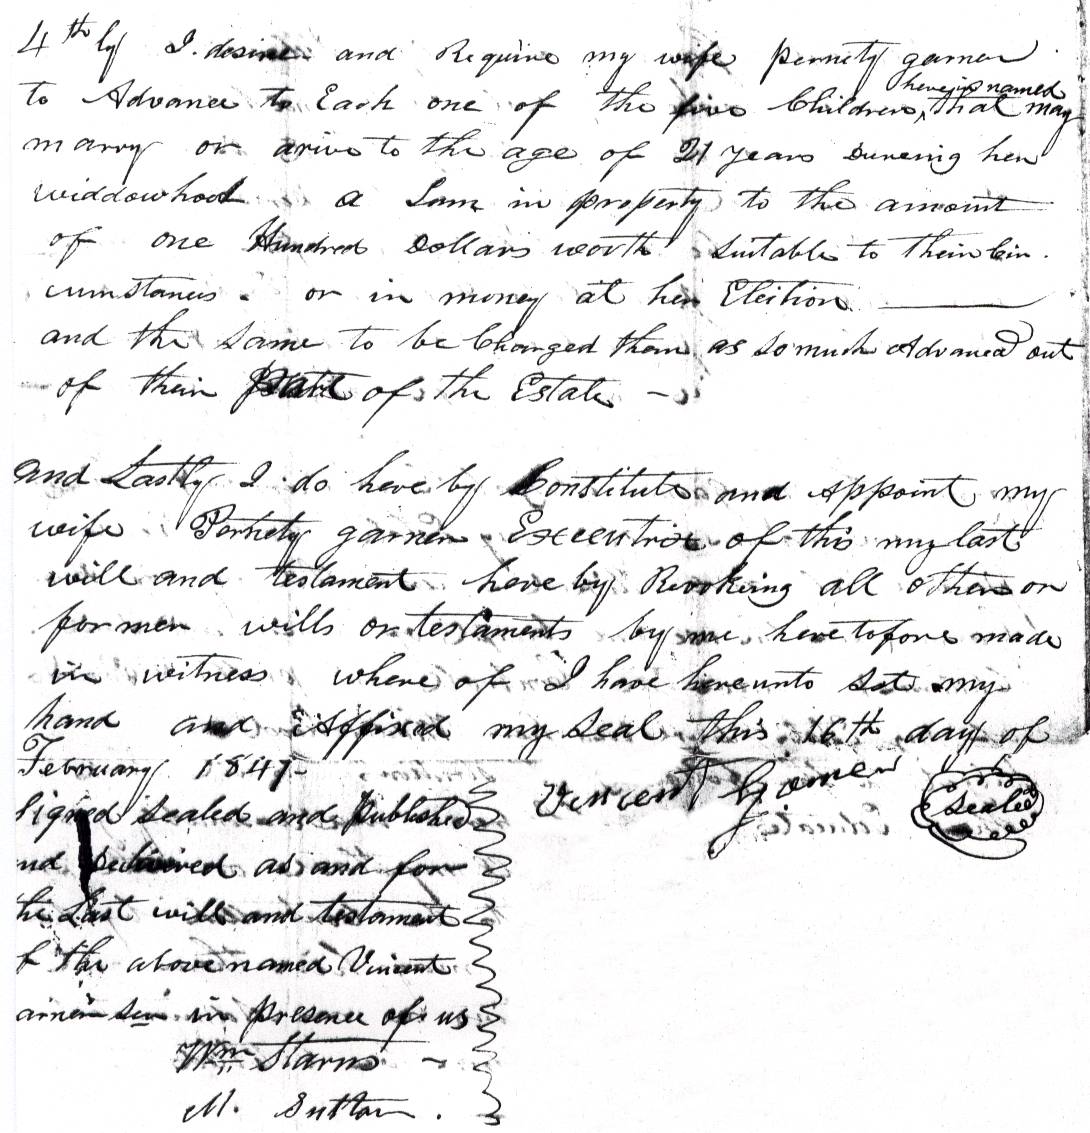 4thly I desire and Require my wife pernety garner
to Advance to Each one of the five Children, herein named that may
marry or arive to the age of 21 years Dureing her
widdowhood a Sum in property to the amount
of one Hundred Dollars worth suitable to their Cir-
cumstances. or in money at her Election
and the same to be Charged them as so much Advanced out
of their part of the Estate —
and Lastly I do here by Constitute and Appoint my
wife Pernety garner Executrix of this my last
will and testament here by Revokeing all others or
former wills or testaments by me heretofore made
in witness where of I have hereunto set my
hand and Affixed my seal this 16th day of
February 1841-
Vincent Garner Sealed
Signed Sealed and published
nd Declaired as and for
the Last will and testament
f the above named Vincent
arner senr in presence of us
Wm Starns —
M. Sutton.